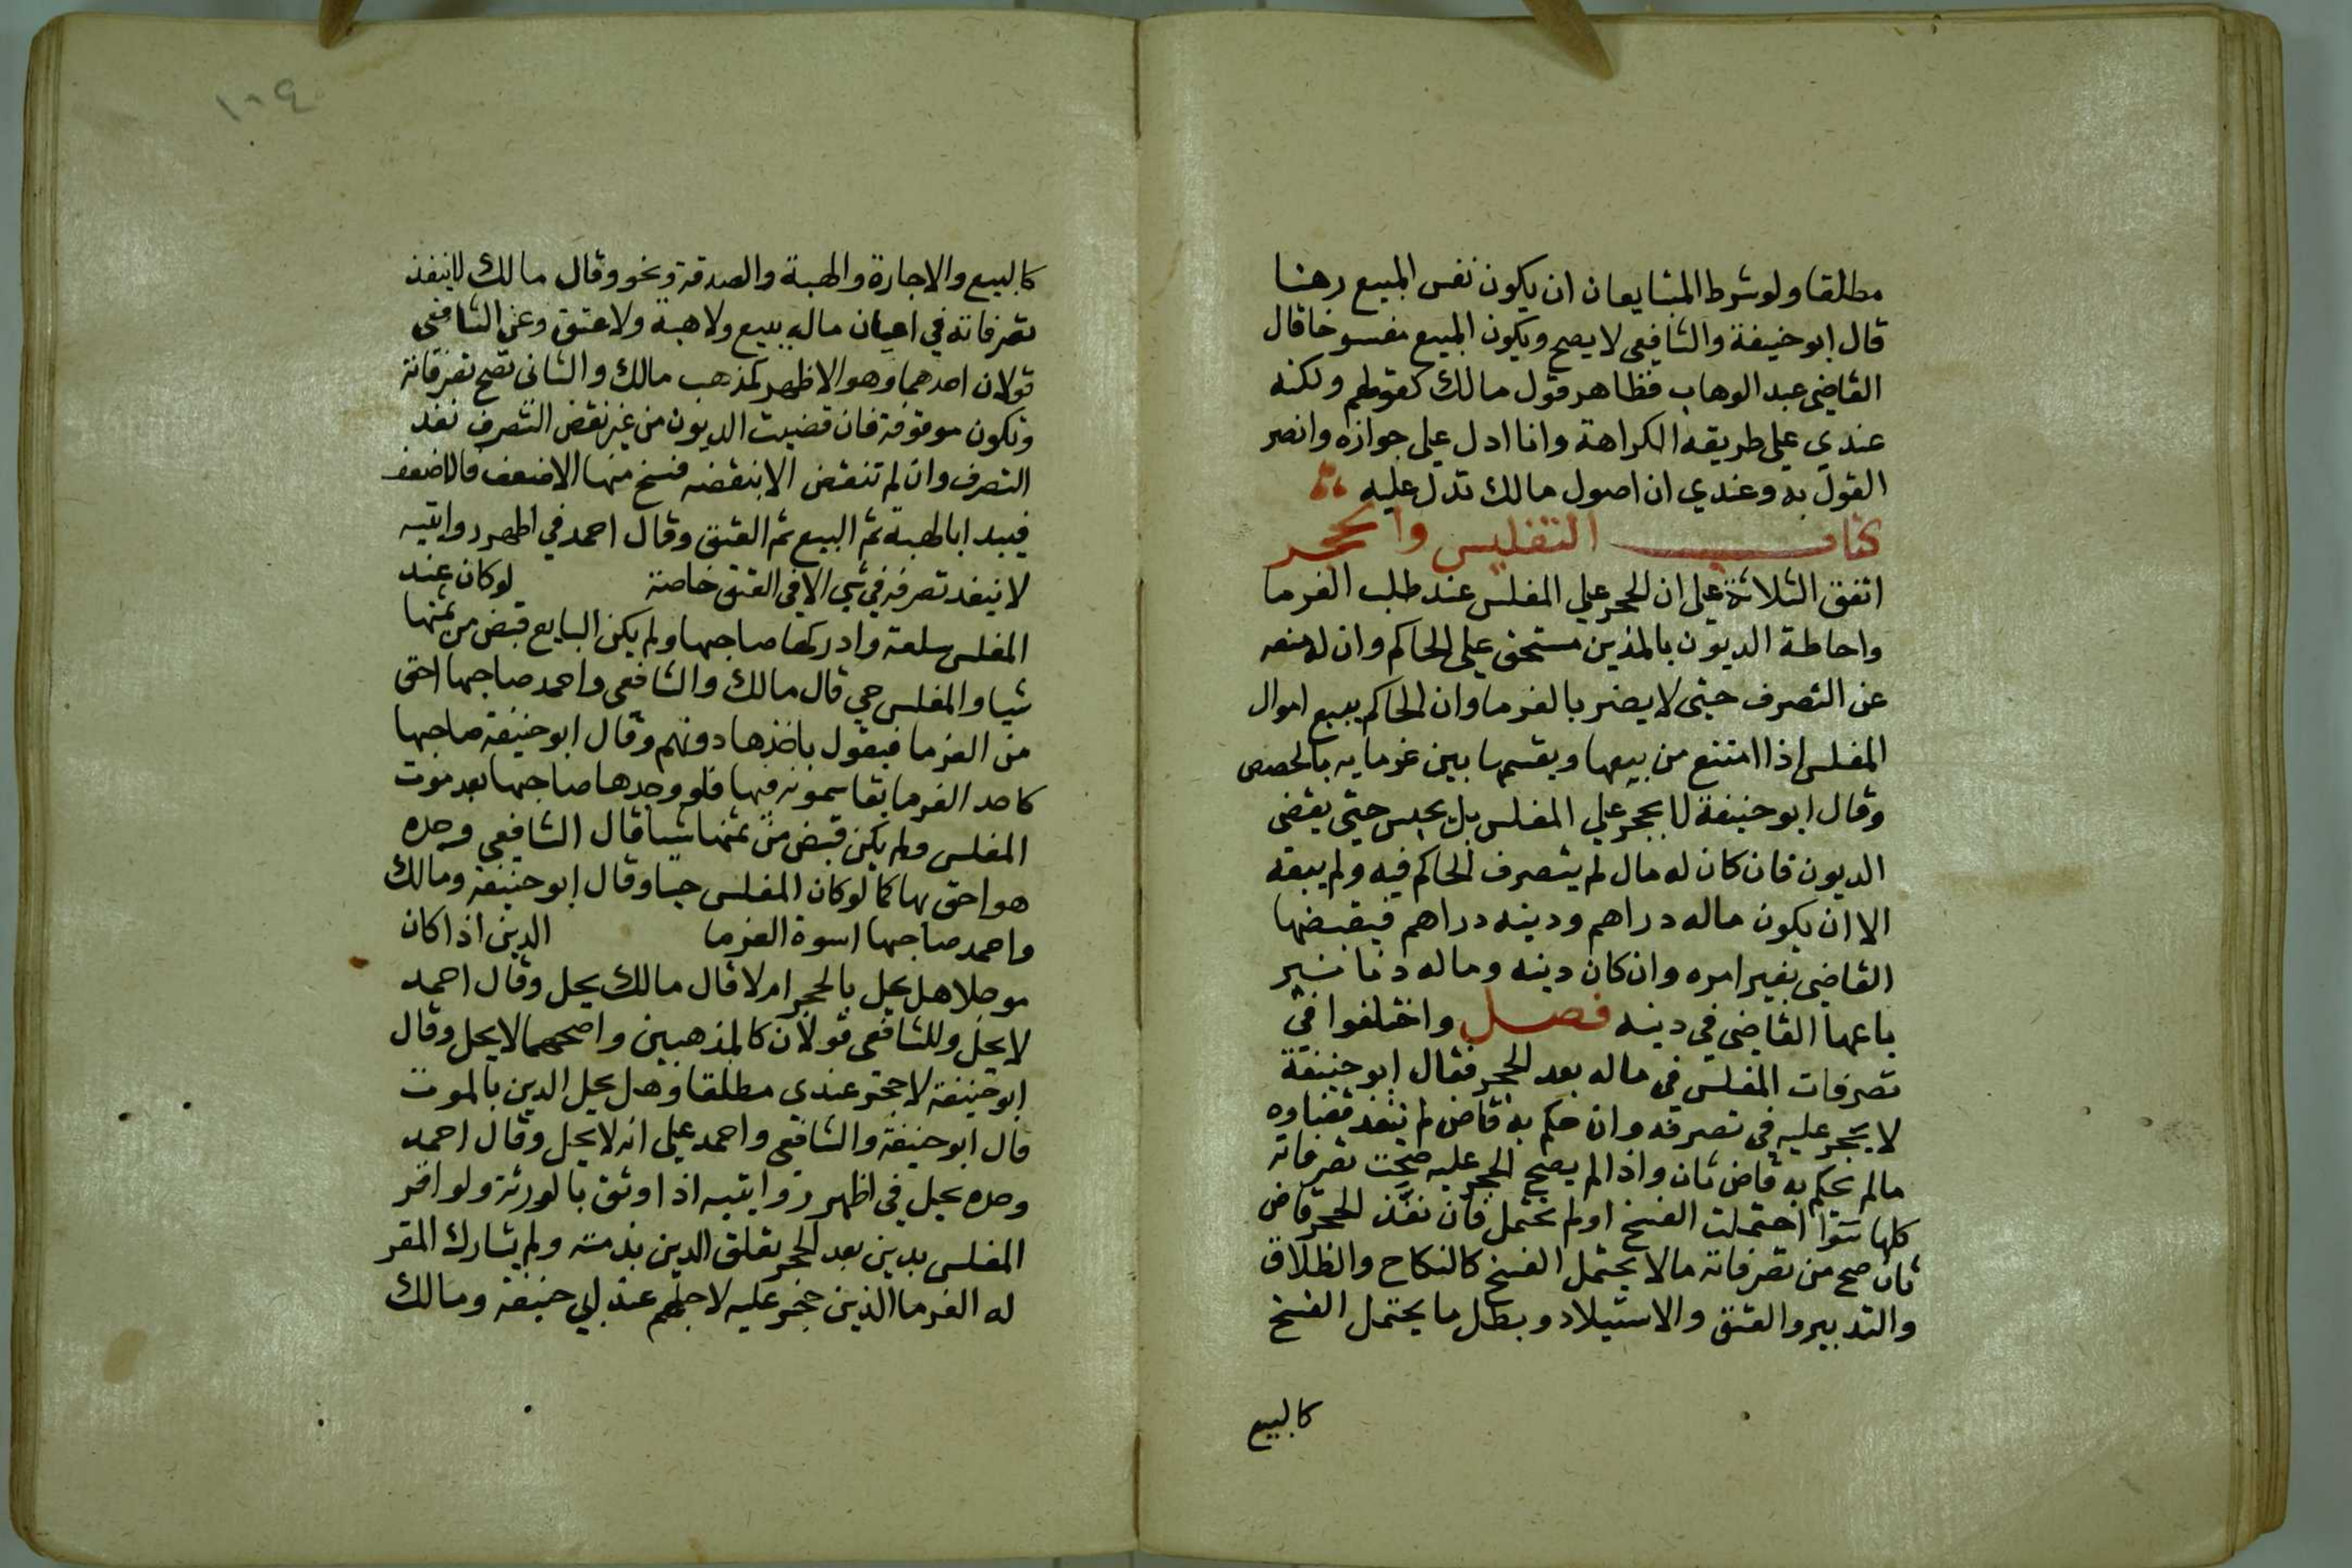 مطلقا ولو شرط المتبايعان ان يكون نفس المبيع رهنا
قال ابو حنيفة والشافعي لا يصح ويكون المبيع مفسوخا قال
القاضي عبد الوهاب فظاهر قول مالك كقولهم ولكنه
عندي علي طريقه الكراهة وانا ادل علي جوازه وانصر
القول به وعندي ان اصول مالك تدل عليه
كتاب التفليس والحجر
اتفق الثلاثة علي ان الحجر علي المفلس عند طلب الغرما
واحاطة الديون بالمذين مستحق علي الحاكم وان له منعه
عن التصرف حيتي لا يضر بالغرما وان الحاكم يبيع اموال
المفلس اذا امتنع من بيعها ويقسمها بين غرمايه بالحصص
وقال ابو حنيفة لا يحجر علي المفلس بل يحبس حيتي يقضي
الديون فان كان له مال لم يتصرف الحاكم فيه ولم يبعه
الا ان يكون ماله دراهم ودينه دراهم فيقبضها
القاضي بغير امره وان كان دينه وماله دنانير
باعها القاضي في دينه فصل واختلفوا في
تصرفات المفلس في ماله بعد الحجر فقال ابو حنيفة
لا يحجر عليه في تصرفه وان حكم به قاض لم ينفذ قضاوه
مالم يحكم به قاض ثان واذا لم يصح الحجر عليه صحت تصرفاته
كلها سوا احتملت الفسخ او لم تحتمل فان نفذ الحجر قاض
ثان صح من تصرفاته مالا يحتمل الفسخ كالنكاح والطلاق
والتدبير والعتق والاستيلاد وبطل ما يحتمل الفسخ
كالبيع
١٠٤
كالبيع والاجارة والهبة والصدقة ونحو وقال مالك لا ينفذ
تصرفاته في اعيان ماله ببيع ولا هبة ولا عتق وعن الشافعي
قولان احدهما وهو الاظهر كمذهب مالك والثاني تصح تصرفاته
وتكون موقوفة فان قضيت الديون من غير نقض التصرف نفذ
التصرف وان لم تنقض الا بنقضه فسخ منها الاضعف فالاضعف
فيبدا بالهبة ثم البيع ثم العتق وقال احمد في اظهر روايتيه
لا ينفذ تصرفه في شي الا في العتق خاصة لو كان عند
المفلس سلعة وادركها صاحبها ولم يكن البايع قبض من ثمنها
شيا والمفلس حي قال مالك والشافعي واحمد صاحبها احق
من الغرما فيقول باخذها دونهم وقال ابو حنيفة صاحبها
كاحد الغرما يقاسمونه فيها فلو وجدها صاحبها بعد موت
المفلس ولم يكن قبض من ثمنها شيا قال الشافعي وحده
هو احق بها كما لو كان المفلس حيا وقال ابو حنيفة ومالك
واحمد صاحبها اسوة الغرما الدين اذا كان
موجلا هل يحل بالحجر ام لا قال مالك يحل وقال احمد
لا يحل وللشافعي قولان كالمذهبين واصحهما لا يحل وقال
ابو حنيفة لا حجر عندي مطلقا وهل يحل الدين بالموت
قال ابو حنيفة والشافعي واحمد علي انه لا يحل وقال احمد
وحده يحل في اظهر روايتيه اذا وثق بالورثة ولو اقر
المفلس بدين بعد الحجر تعلق الدين بذمته ولم يشارك المقر
له الغرما الذين حجر عليه لاجلهم عند ابي حنيفة ومالك